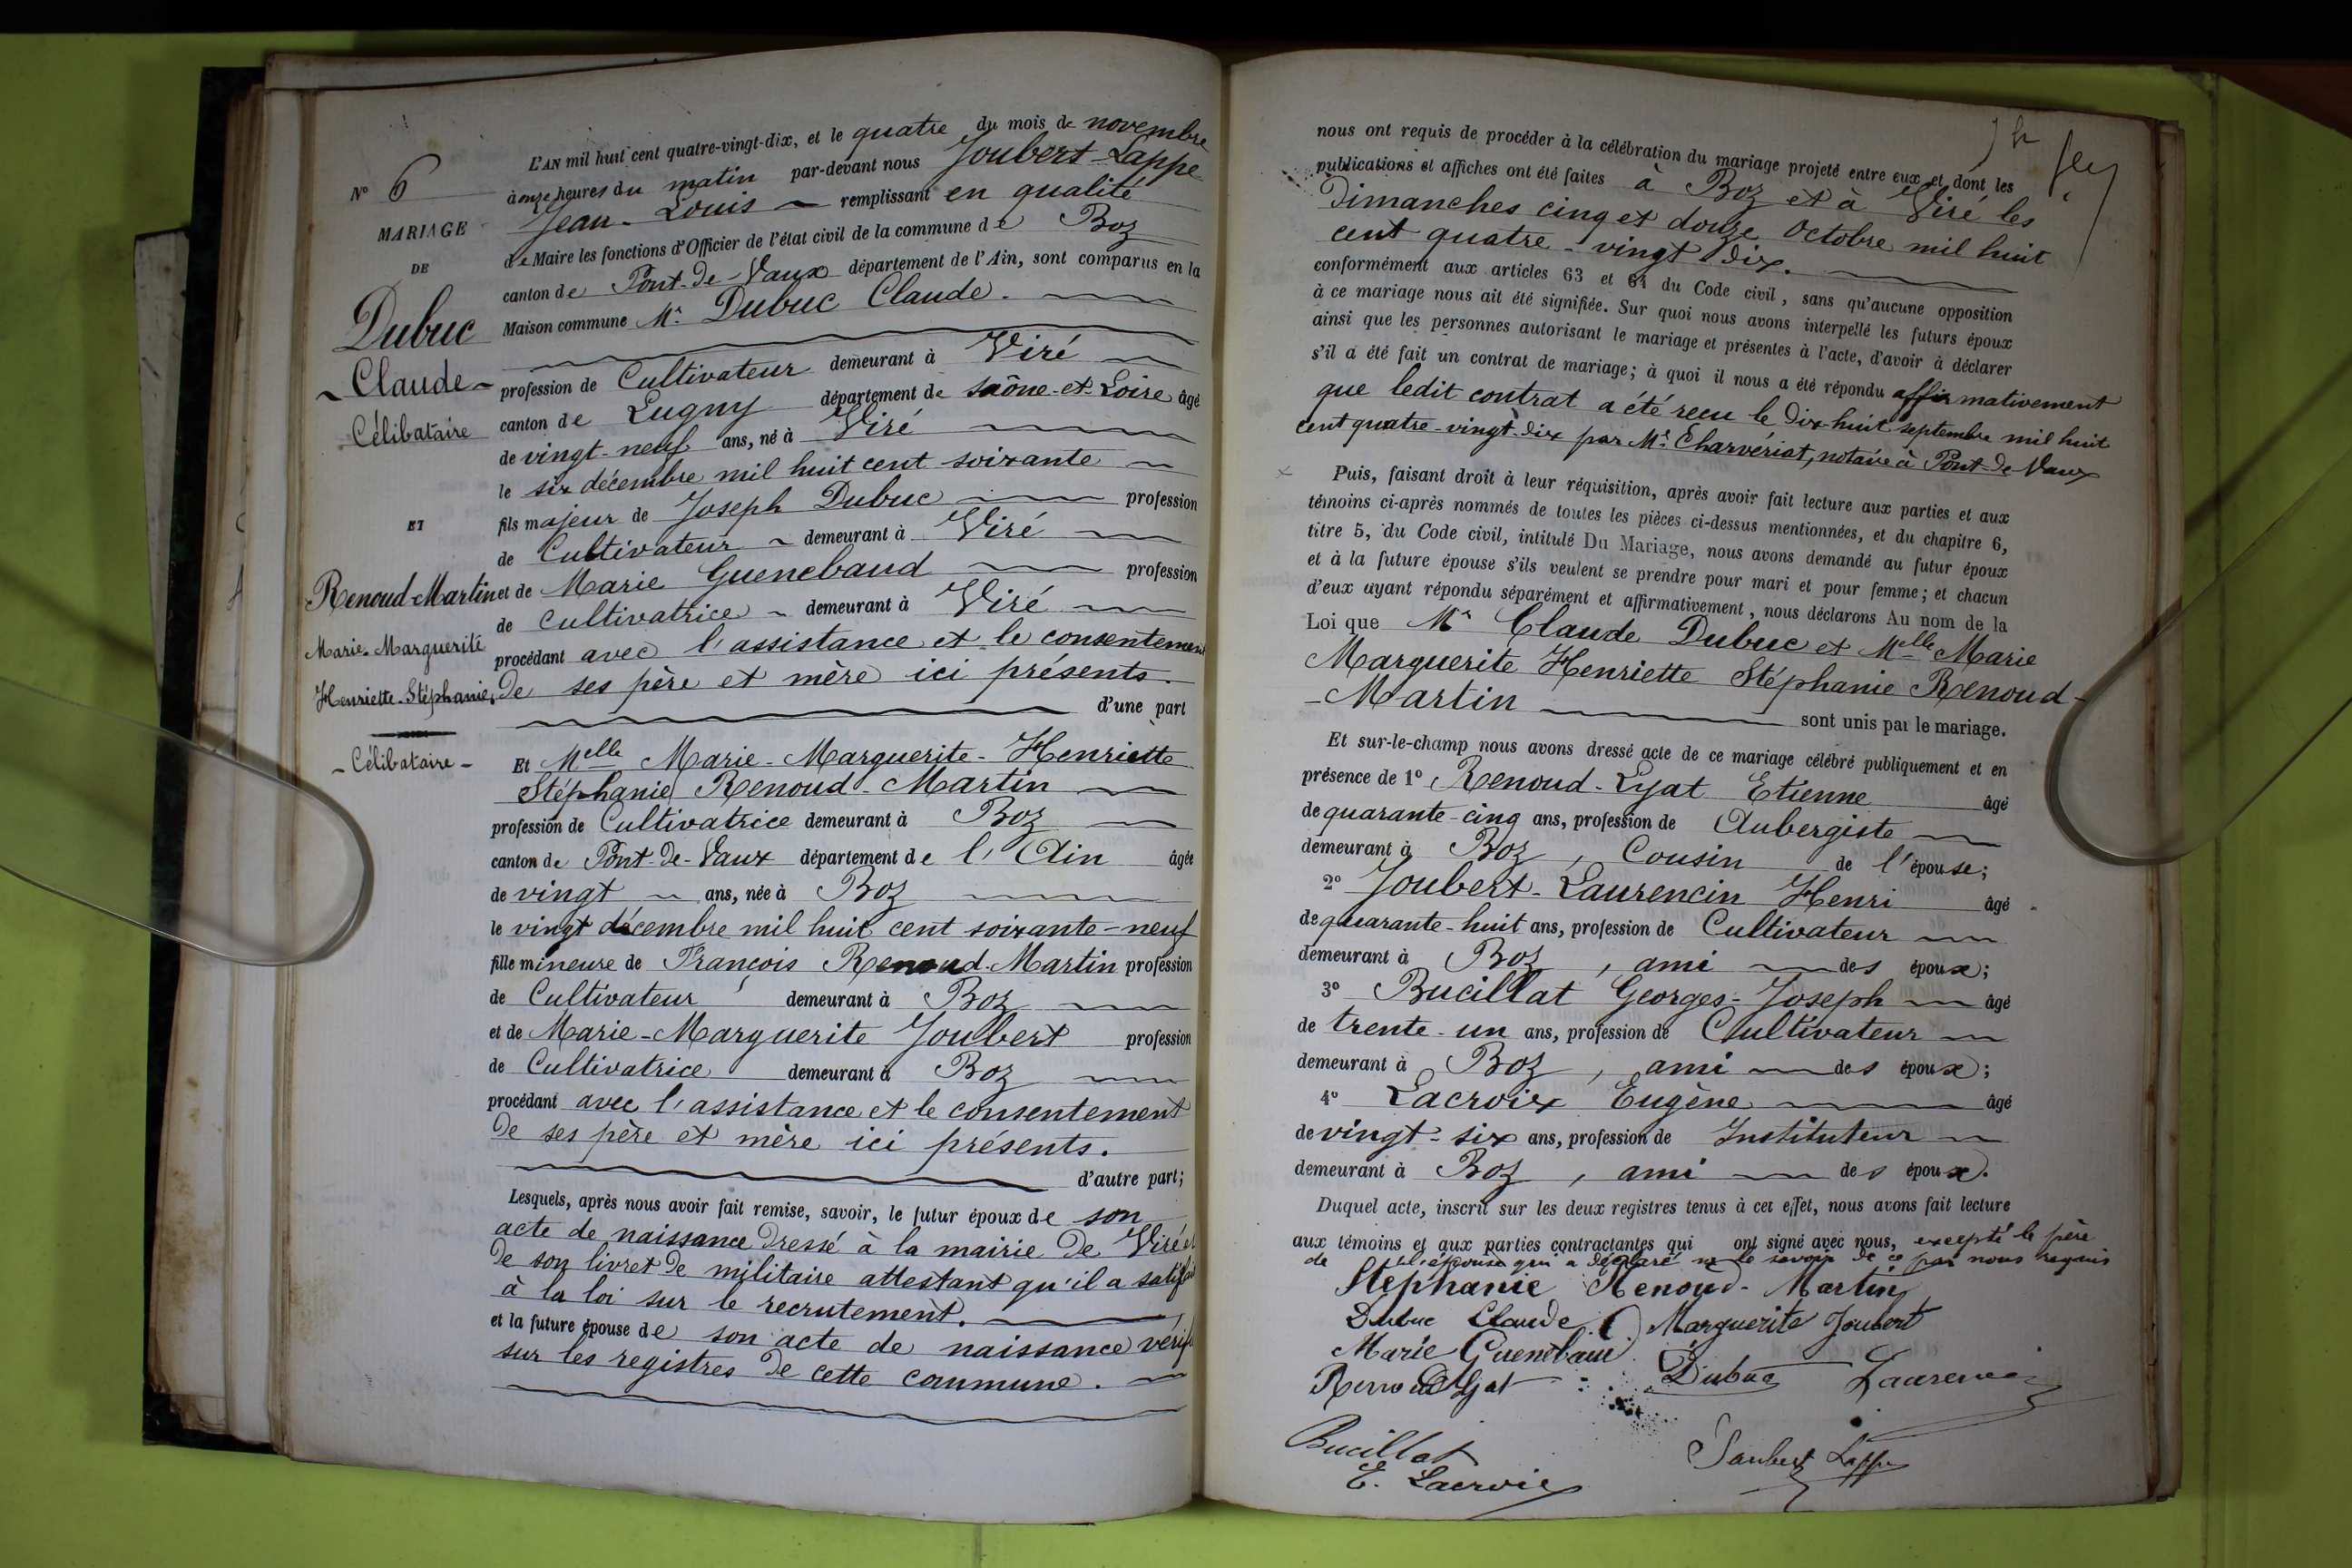 N° 6
MARIAGE
DE
Dubuc
Claude
Célibataire
ET
Renoud-Martin
Marie-Marguerite
Henriette-Stéphanie
Célibataire
L'AN mil huit cent quatre-vingt-dix, et le quatre du mois de novembre
à onze heures du matin par-devant nous Joubert-Lappe
Jean-Louis remplissant en qualité
de Maire les fonctions d'Officier de l'état civil de la commune de Boz
canton de Pont-de-Vaux département de l'Ain, sont comparus en la
Maison commune Mr Dubuc Claude.
profession de Cultivateur demeurant à Viré
canton de Lugny département de Saône-et-Loire âgé
de vingt-neuf ans, né à Viré
le six décembre mil huit cent soixante
fils majeur de Joseph Dubuc profession
de Cultivateur demeurant à Viré
et de Marie Guenebaud profession
de Cultivatrice demeurant à Viré
procédant avec l'assistance et le consentement
de ses père et mère ici présents.
d'une part
Et Melle Marie-Marguerite-Henriette
Stéphanie Renoud-Martin
profession de Cultivatrice demeurant à Boz
canton de Pont-de-Vaux département de l'Ain âgée
de vingt ans, née à Boz
le vingt décembre mil huit cent soixante-neuf
fille mineure de François Renoud-Martin profession
de Cultivateur demeurant à Boz
et de Marie-Marguerite Joubert profession
de Cultivatrice demeurant à Boz
procédant avec l'assistance et le consentement
de ses père et mère ici présents.
d'autre part;
Lesquels, après nous avoir fait remise, savoir, le futur époux de son
acte de naissance dressé à la mairie de Viré et
de son livret de militaire attestant qu'il a satisfait
à la loi sur le recrutement.
et la future épouse de son acte de naissance vérifié
sur les registres de cette commune.
nous ont requis de procéder à la célébration du mariage projeté entre eux et dont les
publications et affiches ont été faites à Boz et à Viré les
Dimanches cinq et douze Octobre mil huit
cent quatre-vingt dix.
conformément aux articles 63 et 64 du Code civil, sans qu'aucune opposition
à ce mariage nous ait été signifiée. Sur quoi nous avons interpellé les futurs époux
ainsi que les personnes autorisant le mariage et présentes à l'acte, d'avoir à déclarer
s'il a été fait un contrat de mariage; à quoi il nous a été répondu affirmativement
que ledit contrat a été reçu le dix-huit septembre mil huit
cent quatre-vingt-dix par Me Charvériat, notaire à Pont-de-Vaux
Puis, faisant droit à leur réquisition, après avoir fait lecture aux parties et aux
témoins ci-après nommés de toutes les pièces ci-dessus mentionnées, et du chapitre 6,
titre 5, du Code civil, intitulé Du Mariage, nous avons demandé au futur époux
et à la future épouse s'ils veulent se prendre pour mari et pour femme; et chacun
d'eux ayant répondu séparément et affirmativement, nous déclarons Au nom de la
Loi que Mr Claude Dubuc et Melle Marie
Marguerite Henriette Stéphanie Renoud-
-Martin sont unis par le mariage.
Et sur-le-champ nous avons dressé acte de ce mariage célébré publiquement et en
présence de 1° Renoud-Lyat Etienne âgé
de quarante-cinq ans, profession de Aubergiste
demeurant à Boz, Cousin de l'épouse;
2° Joubert-Laurencin Henri âgé
de quarante-huit ans, profession de Cultivateur
demeurant à Boz, ami des époux;
3° Bucillat Georges-Joseph âgé
de trente-un ans, profession de Cultivateur
demeurant à Boz, ami des époux;
4° Lacroix Eugène âgé
de vingt-six ans, profession de Instituteur
demeurant à Boz, ami des époux.
Duquel acte, inscrit sur les deux registres tenus à cet effet, nous avons fait lecture
aux témoins et aux parties contractantes qui ont signé avec nous, excepté le père
de l'épouse qui a déclaré ne le savoir de ce par nous requis
Stéphanie Renoud-Martin
Dubuc Claude Marguerite Joubert
Marie Guenebaud
Renoud Lyat Dubuc Laurencin
Bucillat
E. Lacroix Joubert Lappe